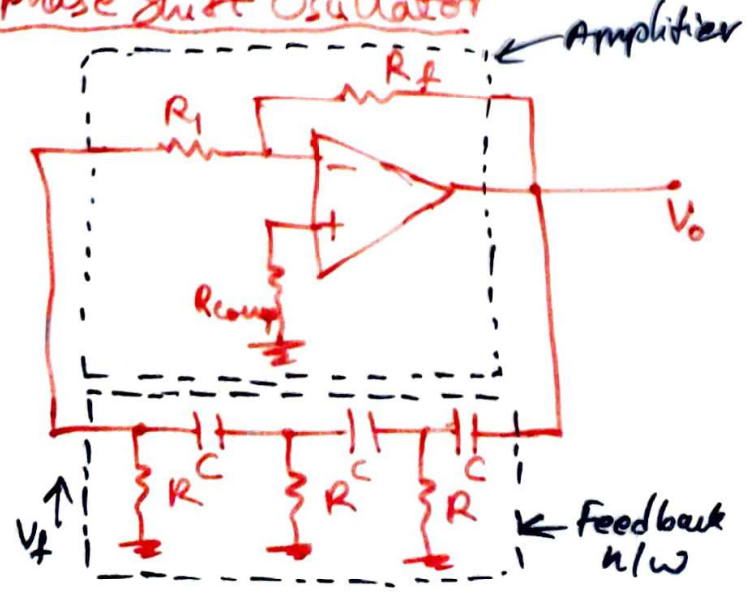 Phase Shift Oscillator
Amplifier
Rf
R1
−
+
Vo
Rcomp
C
C
C
R
R
R
Vf
Feedback
n/w